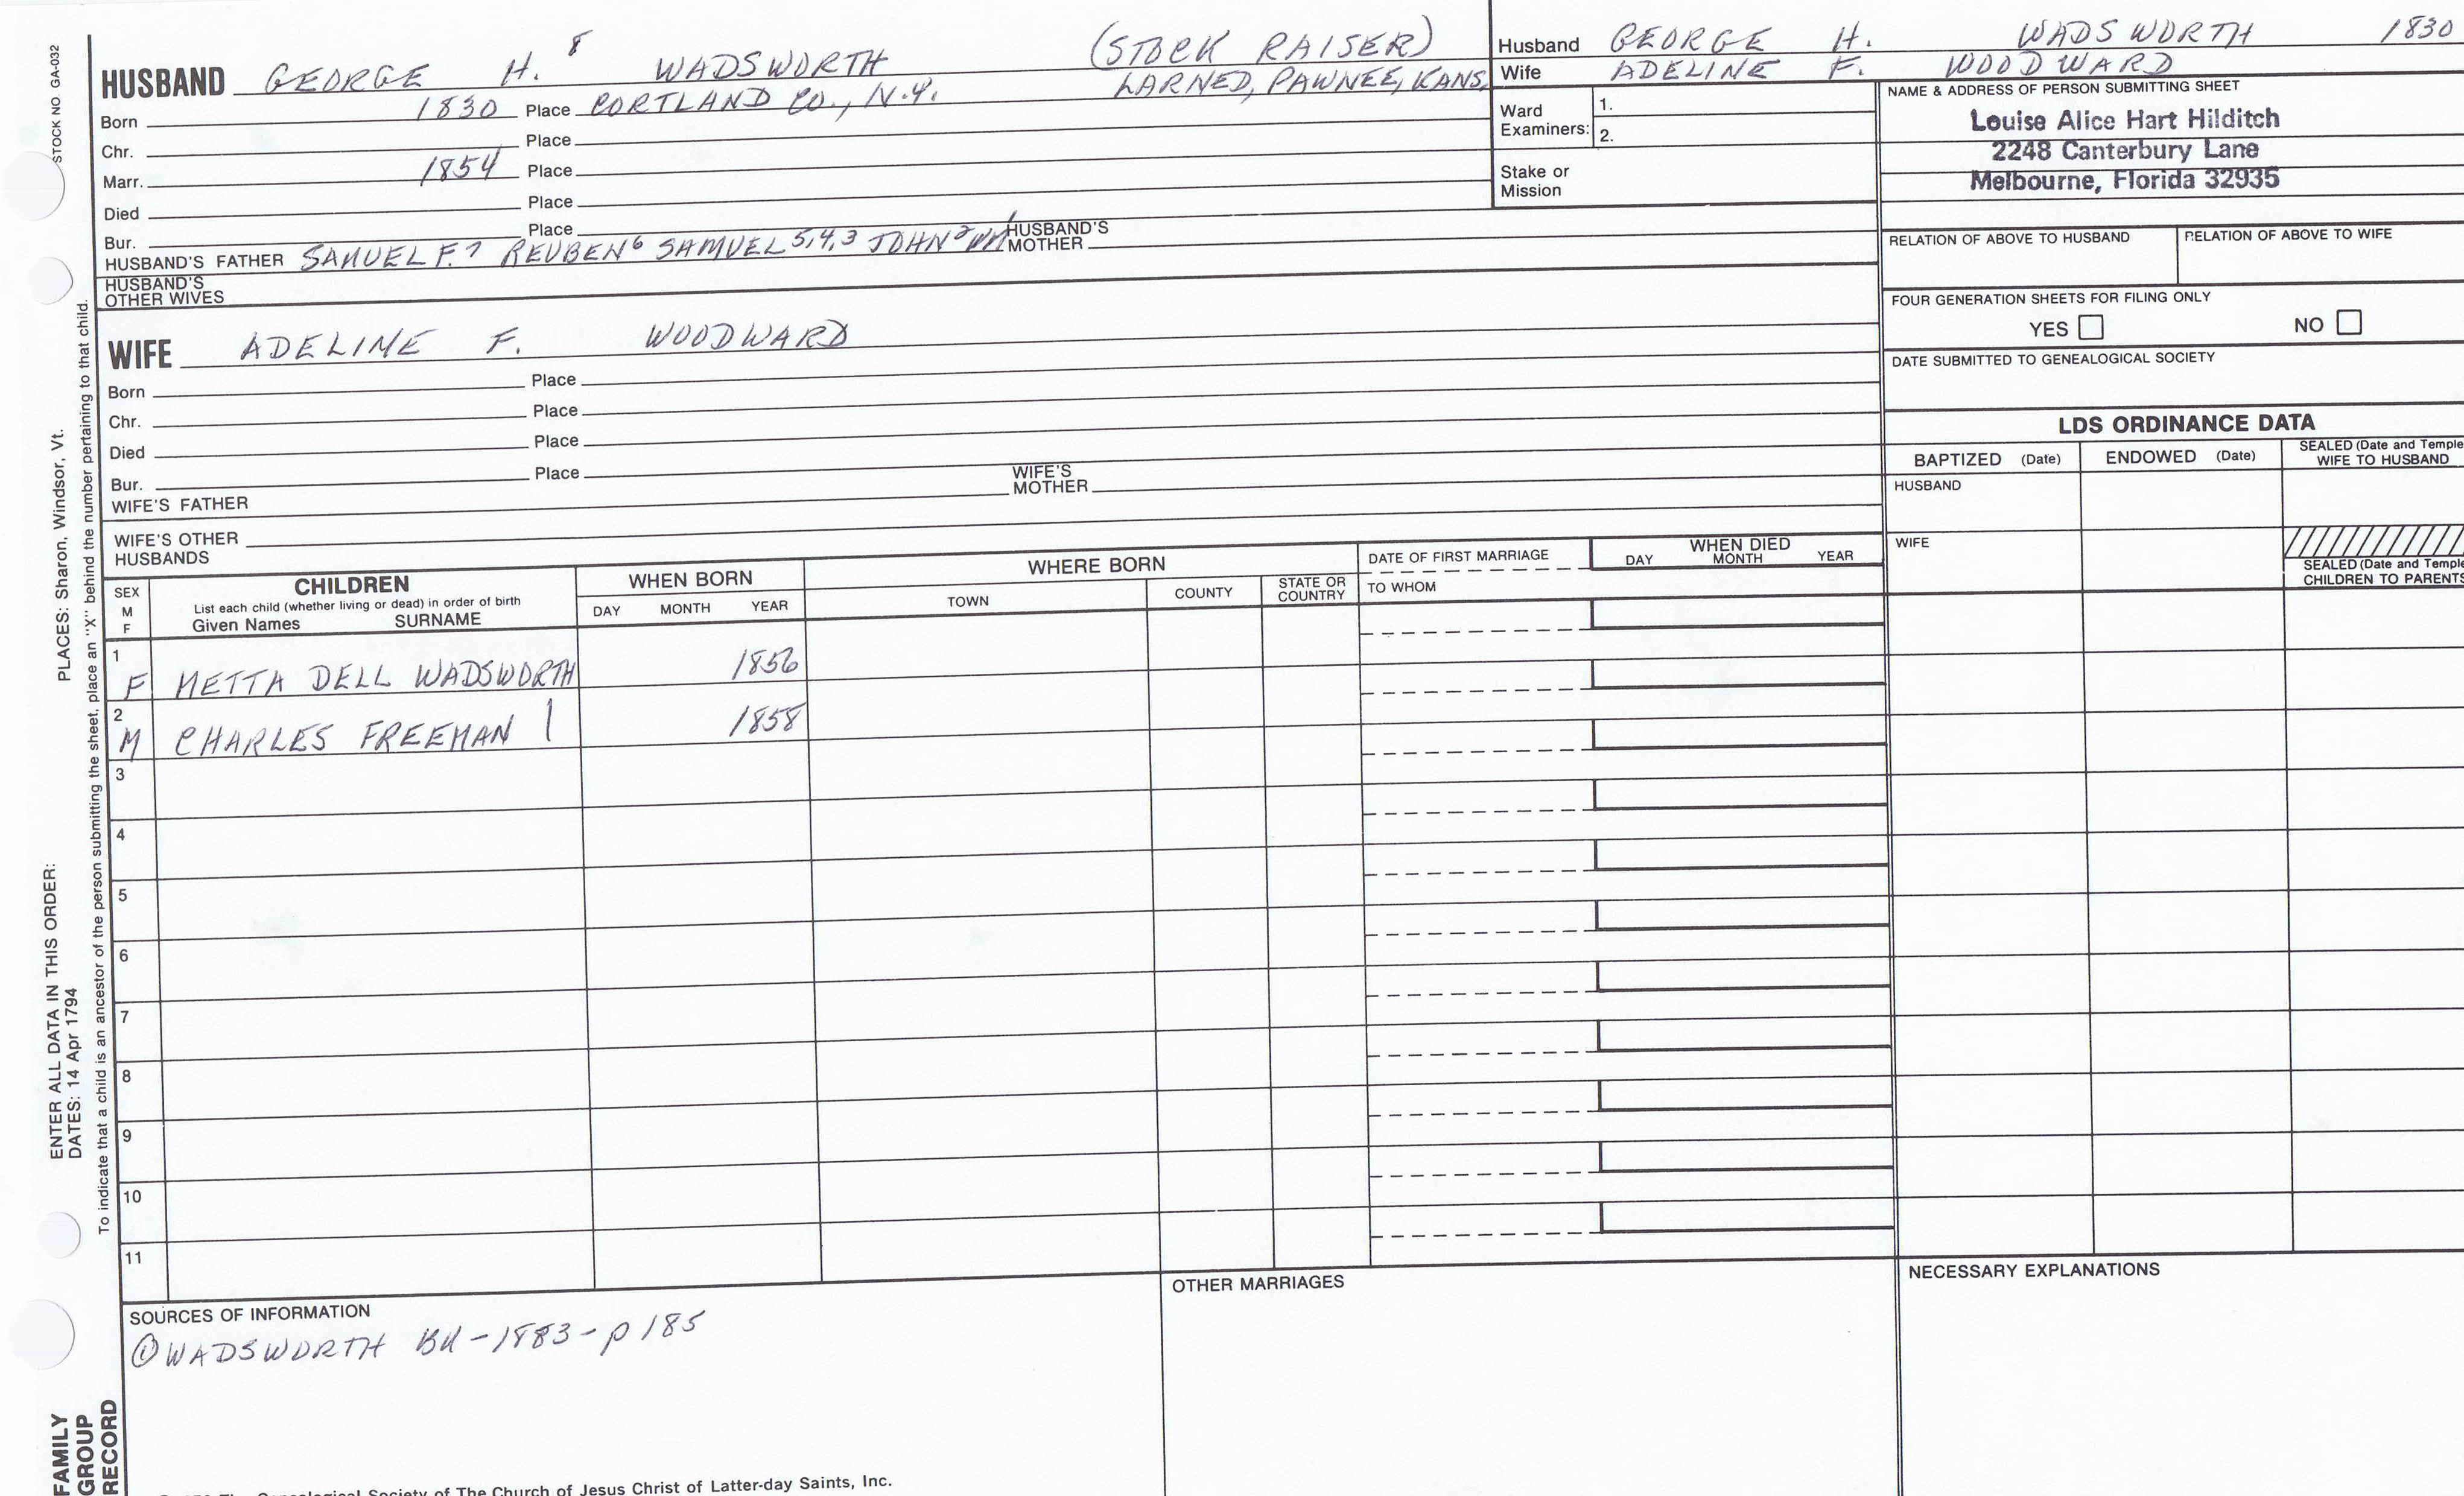 STOCK NO GA-032
PLACES: Sharon, Windsor, Vt.
ENTER ALL DATA IN THIS ORDER:
DATES: 14 Apr 1794
To indicate that a child is an ancestor of the person submitting the sheet, place an "X" behind the number pertaining to that child.
FAMILY
GROUP
RECORD
HUSBAND GEORGE H. 8 WADSWORTH (STOCK RAISER)
LARNED, PAWNEE, KANS.
Born 1830 Place CORTLAND CO., N.Y.
Chr. Place
Marr. 1854 Place
Died Place
Bur. Place
HUSBAND'S FATHER SAMUEL F.7 REUBEN6 SAMUEL 5,4,3 JOHN2 HUSBAND'S MOTHER
HUSBAND'S
OTHER WIVES
WIFE ADELINE F. WOODWARD
Born Place
Chr. Place
Died Place
Bur. Place
WIFE'S FATHER WIFE'S MOTHER
WIFE'S OTHER
HUSBANDS
Husband GEORGE H. WADSWORTH 1830
Wife ADELINE F. WOODWARD
Ward
Examiners:
1.
2.
Stake or
Mission
NAME & ADDRESS OF PERSON SUBMITTING SHEET
Louise Alice Hart Hilditch
2248 Canterbury Lane
Melbourne, Florida 32935
RELATION OF ABOVE TO HUSBAND RELATION OF ABOVE TO WIFE
FOUR GENERATION SHEETS FOR FILING ONLY
YES NO
DATE SUBMITTED TO GENEALOGICAL SOCIETY
LDS ORDINANCE DATA
BAPTIZED (Date) ENDOWED (Date) SEALED (Date and Temple
WIFE TO HUSBAND
HUSBAND
WIFE
SEALED (Date and Temple
CHILDREN TO PARENTS
SEX
M
F
CHILDREN
List each child (whether living or dead) in order of birth
Given Names SURNAME
WHEN BORN
DAY MONTH YEAR
WHERE BORN
TOWN COUNTY STATE OR
COUNTRY
DATE OF FIRST MARRIAGE
TO WHOM
WHEN DIED
DAY MONTH YEAR
1
F METTA DELL WADSWORTH 1856
2
M CHARLES FREEMAN 1858
3
4
5
6
7
8
9
10
11
SOURCES OF INFORMATION
① WADSWORTH BK-1883-p185
OTHER MARRIAGES
NECESSARY EXPLANATIONS
Society of The Church of Jesus Christ of Latter-day Saints, Inc.